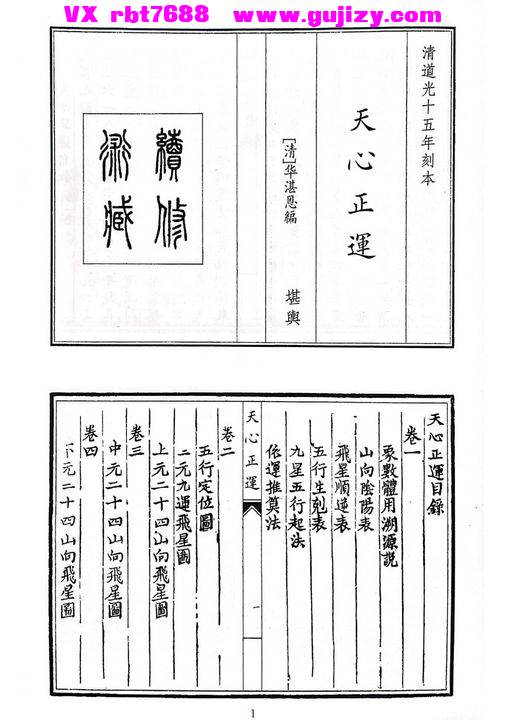 VX rbt7688 www.gujizy.com
清道光十五年刻本
天心正運
[清]华湛恩編
堪輿
續修
術藏
天心正運目錄
卷一
象數體用溯源説
山向陰陽表
飛星順逆表
五行生剋表
九星五行起法
依運推算法
天心正運
一
卷二
五行定位圖
二元九運飛星圖
上元二十四山向飛星圖
卷三
中元二十四山向飛星圖
卷四
下元二十四山向飛星圖
1